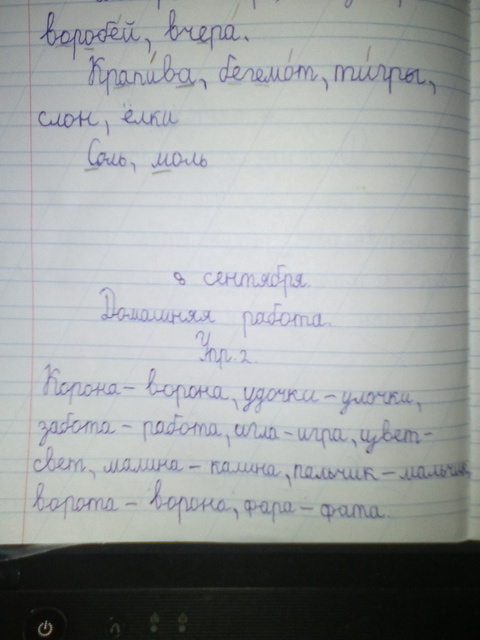 воробей, вчера.
Крапи́ва, бегемо́т, ти́гры,
слон, ёлки
Соль, моль
8 сентября.
Домашняя работа.
Упр. 2.
Корона – ворона, удочки – улочки,
забота – работа, игла – игра, цвет –
свет, малина – калина, пальчик – мальчик,
ворота – ворона, фара – фата